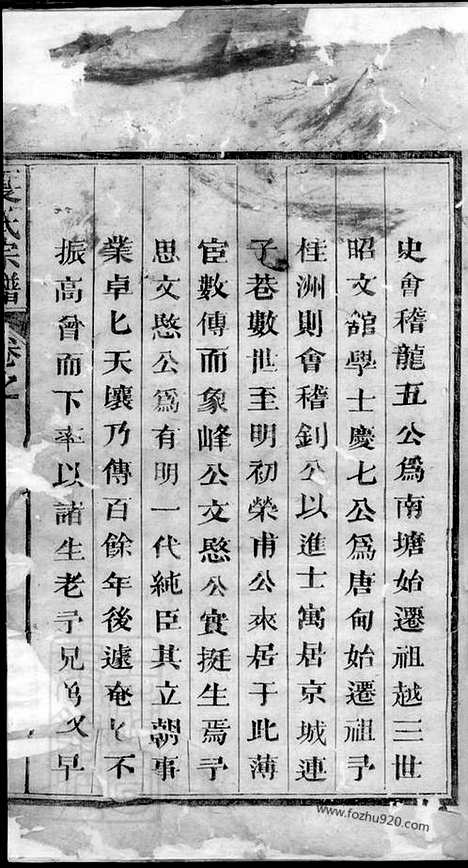 史會稽龍五公爲南塘始遷祖越三世
昭文舘學士慶七公爲唐甸始遷祖予
桂洲則會稽釗公以進士寓居京城連
子巷數世至明初榮甫公來居于此薄
宦數傳而象峰公文愍公實挺生焉予
思文愍公爲有明一代純臣其立朝事
業卓匕天壤乃傳百餘年後遽奄匕不
振高曾而下率以諸生老予兄爲父早
氏宗譜
卷之
www.fozhu920.com